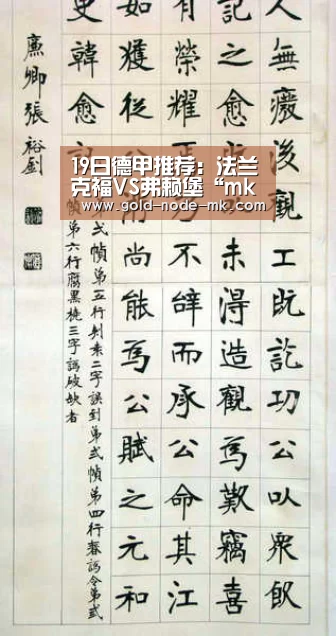 人無癈後觀工既訖功公以衆飲
記之愈未得造觀爲歎竊喜
有榮耀焉乃不辭而承公命其江
如獲從公尚能爲公賦之元和
史韓愈
弍幀弟五行二字誤到弟弍幀弟四行春誤令弟弍
幀弟六行腐黑撓三字誤破缺者
廉卿張裕釗
19日德甲推荐：法兰
克福VS弗赖堡“mk
www.gold-node-mk.com